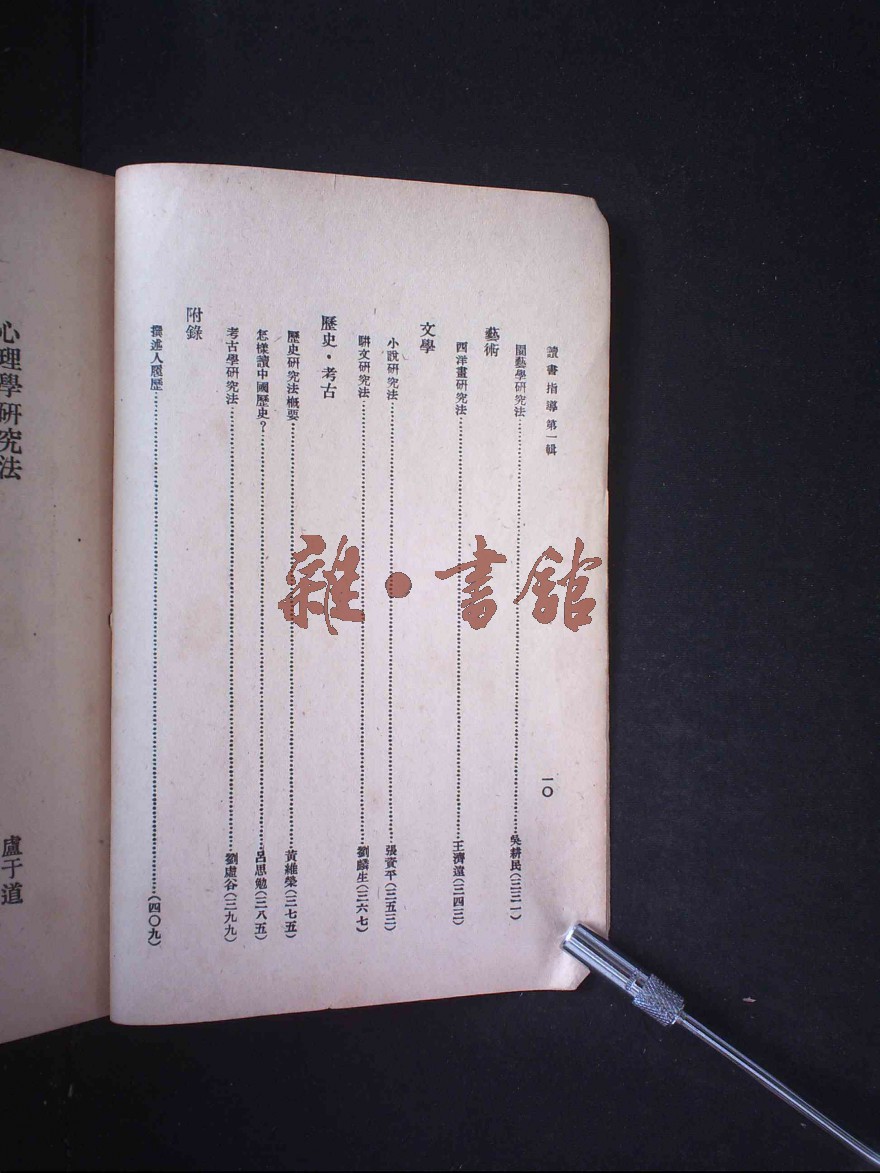 讀書指導第一輯 一〇
園藝學研究法……吳耕民(三三一)
藝術
西洋畫研究法……王濟遠(三四三)
文學
小說研究法……張資平(三五三)
駢文研究法……劉麟生(三六七)
歷史・考古
歷史研究法概要……黃維榮(三七五)
怎樣讀中國歷史？……呂思勉(三八五)
考古學研究法……劉虛谷(三九九)
附錄
撰述人履歷……(四〇九)
心理學研究法 盧于道
雜・書館